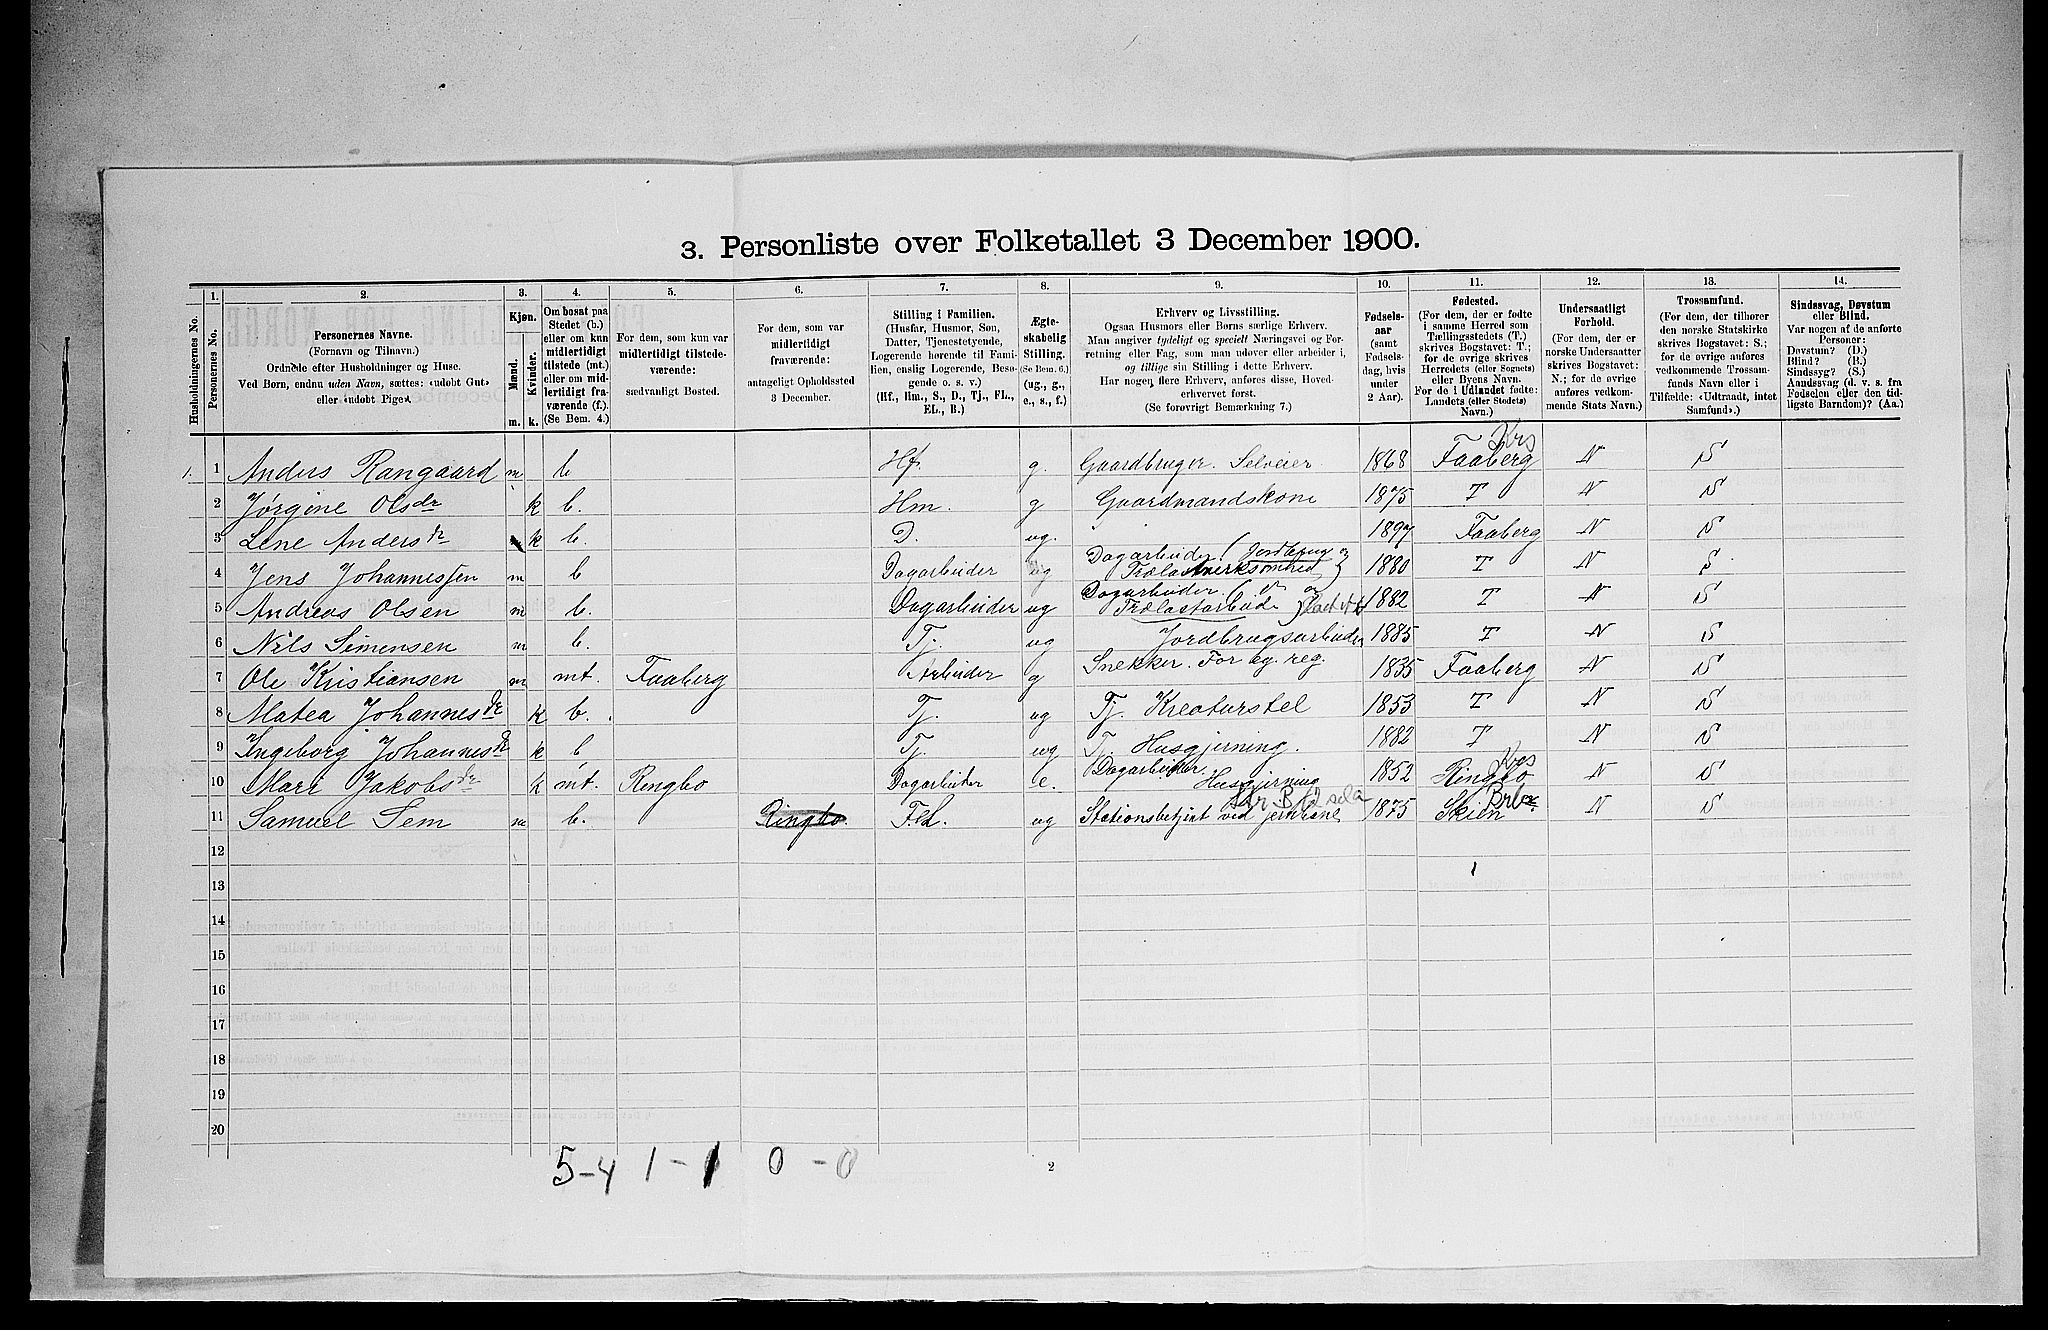 3. Personliste over Folketallet 3 December 1900.
Husholdningernes No.
1. Personernes No.
2. Personernes Navne.
(Fornavn og Tilnavn.)
Ordnede efter Husholdninger og Huse.
Ved Børn, endnu uden Navn, sættes: «udøbt Gut»
eller «udøbt Pige».
3. Kjøn.
Mænd. m.
Kvinder. k.
4. Om bosat paa
Stedet (b.)
eller om kun
midlertidigt
tilstede (mt.)
eller om mid-
lertidigt fra-
værende (f.).
(Se Bem. 4.)
5. For dem, som kun var
midlertidigt tilstede-
værende:
sædvanligt Bosted.
6. For dem, som var
midlertidigt
fraværende:
antageligt Opholdssted
3 December.
7. Stilling i Familien.
(Husfar, Husmor, Søn,
Datter, Tjenestetyende,
Logerende hørende til Fami-
lien, enslig Logerende, Besø-
gende o. s. v.)
(Hf., Hm., S., D., Tj., FL.,
EL., B.)
8. Ægte-
skabelig
Stilling.
(Se Bem. 6.)
(ug., g.,
e., s., f.)
9. Erhverv og Livsstilling.
Ogsaa Husmors eller Børns særlige Erhverv.
Man angiver tydeligt og specielt Næringsvei og For-
retning eller Fag, som man udøver eller arbeider i,
og tillige sin Stilling i dette Erhverv.
Har nogen flere Erhverv, anføres disse, Hoved-
erhvervet først.
(Se forøvrigt Bemærkning 7.)
10. Fødsels-
aar
(samt
Fødsels-
dag, hvis
under
2 Aar).
11. Fødested.
(For dem, der er fødte
i samme Herred som
Tællingsstedets (T.)
skrives Bogstavet: T.;
for de øvrige skrives
Herredets (eller Sognets)
eller Byens Navn.
For de i Udlandet fødte:
Landets (eller Stedets)
Navn.)
12. Undersaatligt
Forhold.
(For dem, der er
norske Undersaatter
skrives Bogstavet:
N.; for de øvrige
anføres vedkom-
mende Stats Navn.)
13. Trossamfund.
(For dem, der tilhører
den norske Statskirke
skrives Bogstavet: S.;
for de øvrige anføres
vedkommende Trossam-
funds Navn eller i
Tilfælde: «Udtraadt, intet
Samfund».)
14. Sindssvag, Døvstum
eller Blind.
Var nogen af de anførte
Personer:
Døvstum? (D.)
Blind? (B.)
Sindssyg? (S.)
Aandssvag (d. v. s. fra
Fødselen eller den tid-
ligste Barndom)? (Aa.)
1. 1 Anders Rangaard m b Hf. g. Gaardbruger. Selveier. 1868 Faaberg Krs N S
2 Jørgine Olsdr k b. Hm. g Gaardmandskone 1875 T N S
3 Lene Andersdr k b. D. ug. 1897 Faaberg N S
4 Jens Johannessen m b Dagarbeider ug Dagarbeider (Jordbrug og
Trælastvirksomhed) 1880 T N S
5 Andreas Olsen m b. Dagarbeider ug Dagarbeider (
Trælastarbeide) 1882 T N S
6 Nils Simensen m b. Tj. ug Jordbrugsarbeider 1885 T N S
7 Ole Kristiansen m mt. Faaberg Arbeider g Snekker. For eg. reg. 1835 Faaberg N S
8 Matea Johannesdr k b. Tj. ug Tj. Kreaturstel 1853 T N S
9 Ingeborg Johannesdr k b Tj. ug Tj. Husgjerning. 1882 T N S
10 Mari Jakobsdr k mt. Ringbo Dagarbeider e. Dagarbeider Husgjerning 1852 Ringbo Krs N S
11 Samuel Sem m b. Ringbo. FL. ug Stationsbetjent ved jernbane 1875 Skien N S
12
13
14
15
16
17
18
19
20
5-4 1-1 0-0
2